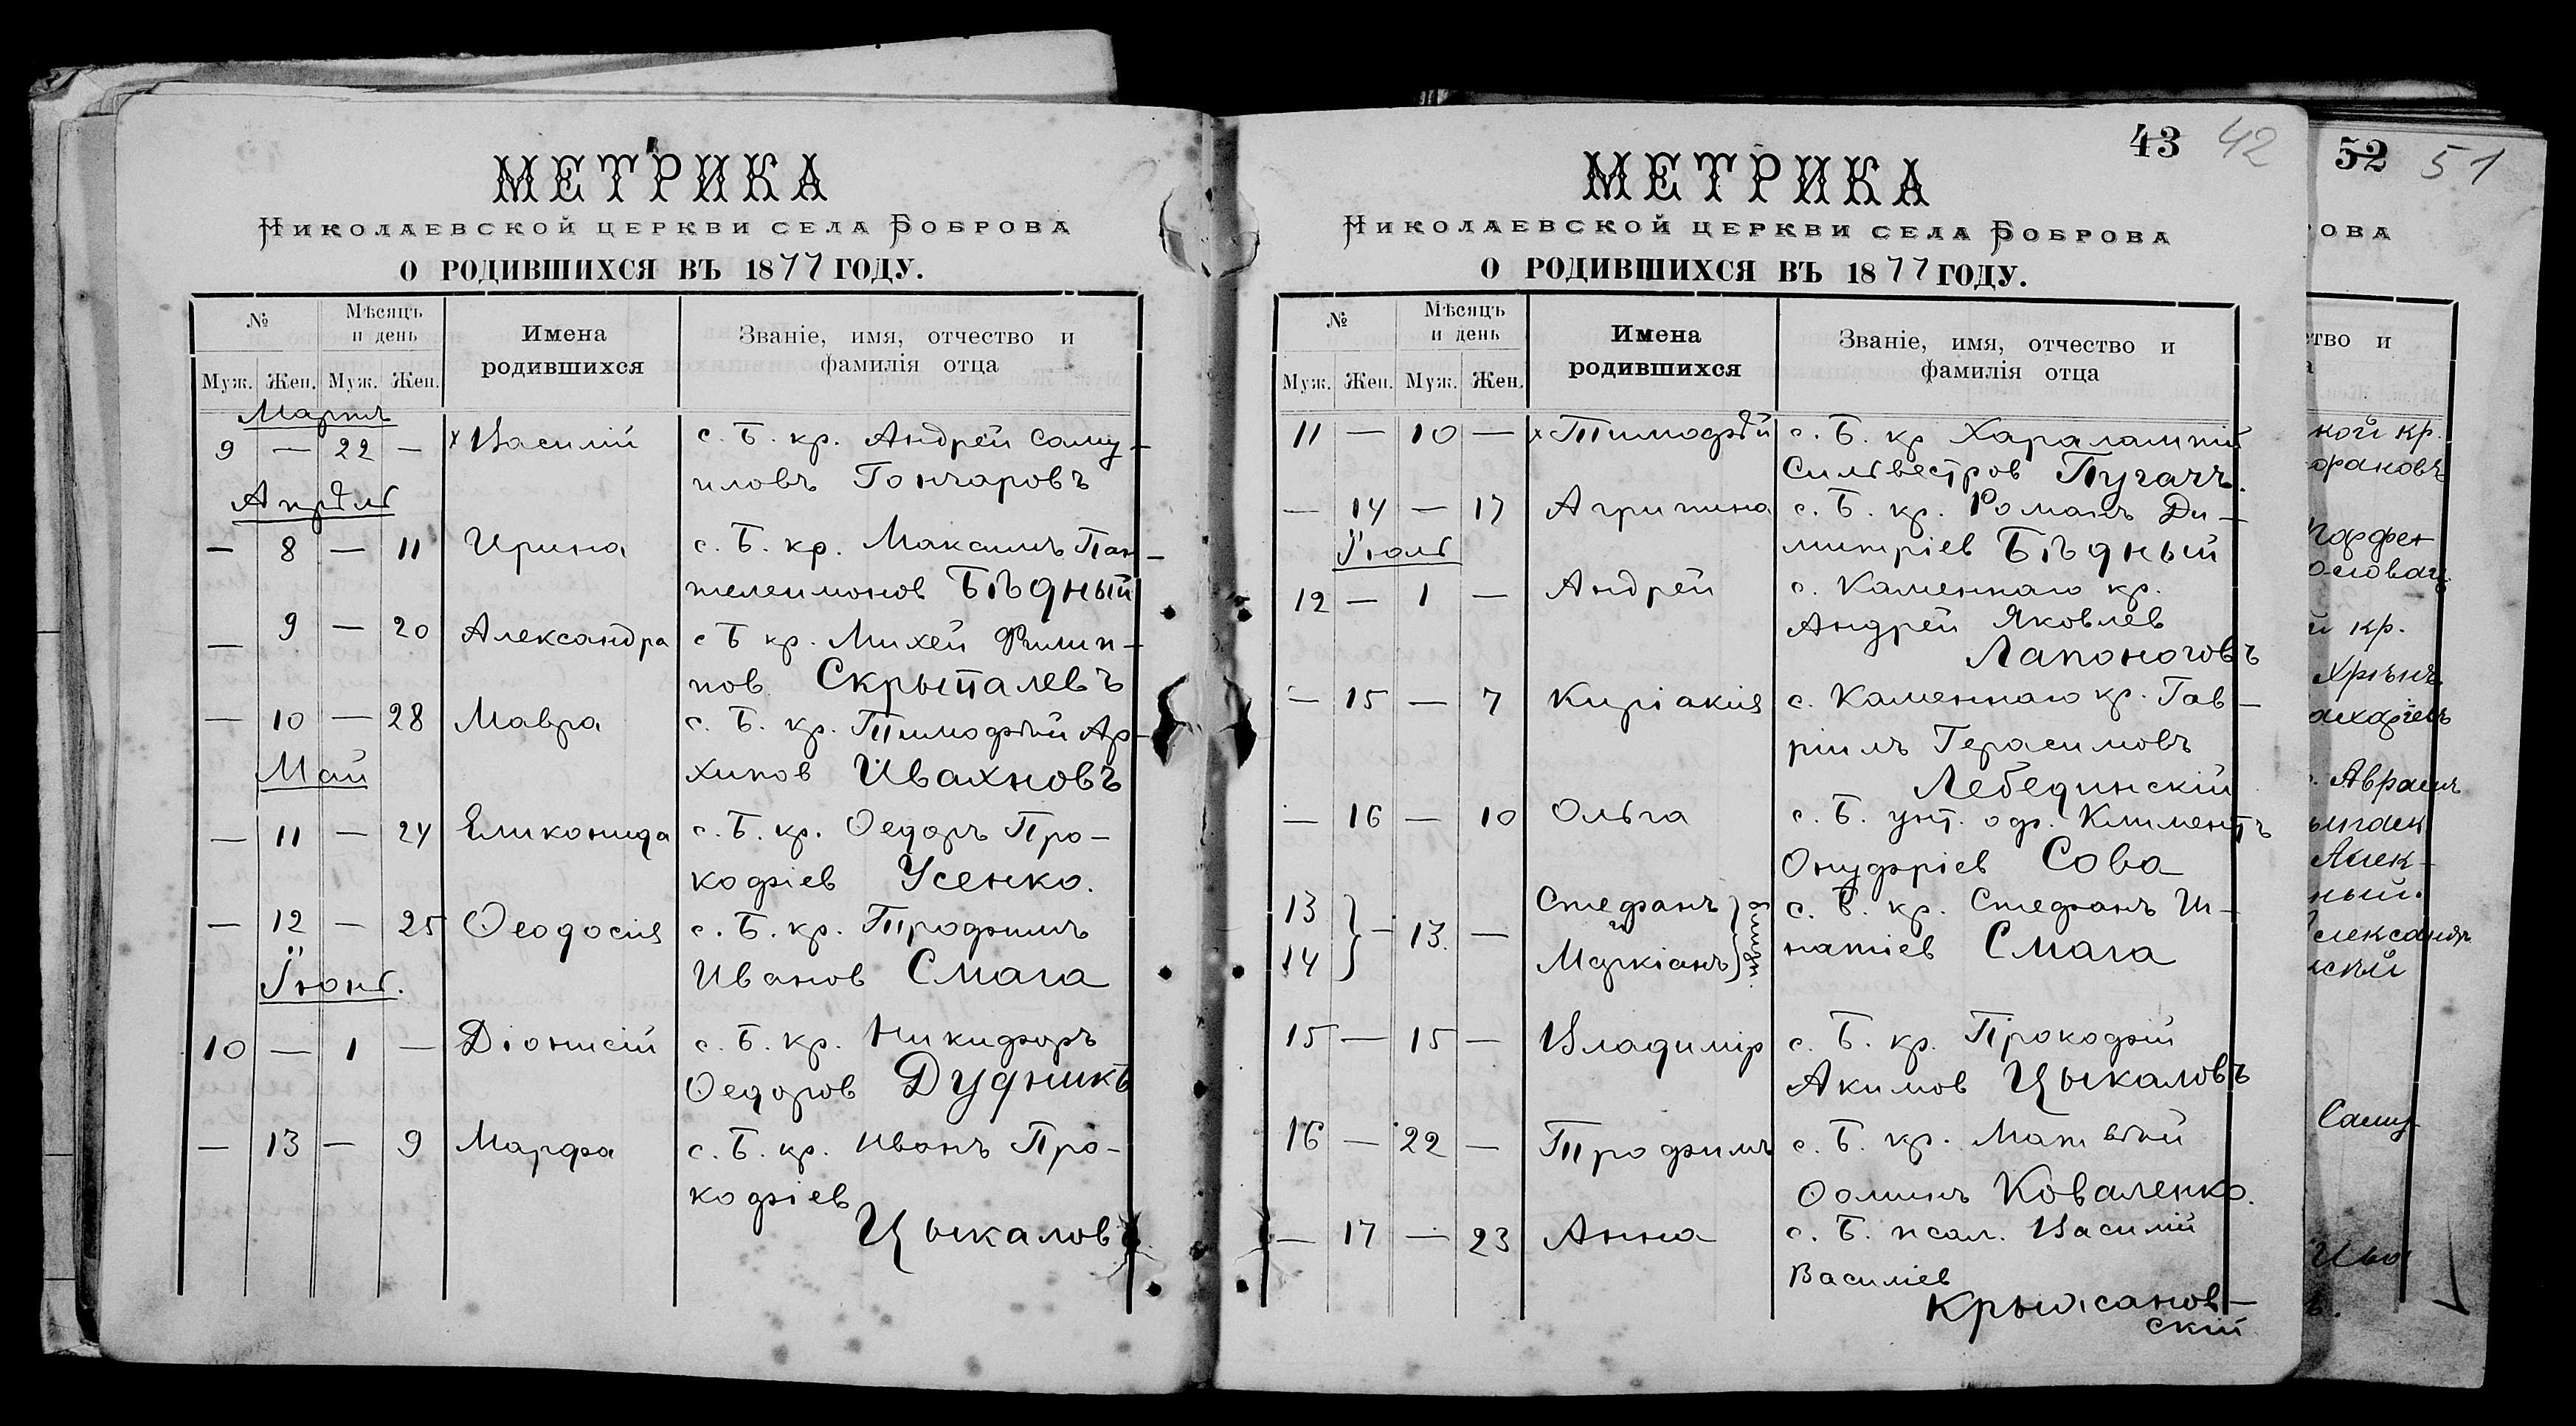 МЕТРИКА
Николаевской церкви села Боброва
О РОДИВШИХСЯ ВЪ 1877 ГОДУ.
№ Мѣсяцъ и день Имена родившихся Званіе, имя, отчество и фамилія отца
Муж. Жен. Муж. Жен.
Мартъ
9 — 22 — х Василій с. Б. кр. Андрей Саму-
иловъ Гончаровъ
Апрѣль
— 8 — 11 Ирина с. Б. кр. Максимъ Пан-
телеимонов Бѣдный
— 9 — 20 Александра с Б кр. Михей Филип-
пов Скрыпалевъ
— 10 — 28 Мавра с. Б. кр. Тимофѣй Ар-
хипов Ивахновъ
Май
— 11 — 24 Еликонида с. Б. кр. Ѳедоръ Про-
кофіев Усенко.
— 12 — 25 Ѳеодосія с. Б. кр. Трофимъ
Иванов Смага
Іюнь.
10 — 1 — Діонисій с. Б. кр. Никифоръ
Ѳедоров Дудникъ
— 13 — 9 Марфа с. Б. кр. Иванъ Про-
кофіев
Цыкаловъ
43 42
МЕТРИКА
Николаевской церкви села Боброва
О РОДИВШИХСЯ ВЪ 1877 ГОДУ.
№ Мѣсяцъ и день Имена родившихся Званіе, имя, отчество и фамилія отца
Муж. Жен. Муж. Жен.
11 — 10 — х Тимофѣй с. Б. кр Харалампій
Сильвестров Пугачъ.
— 14 — 17 Агрипина с. Б. кр. Романъ Ди-
митріев Бѣдный
Іюль
12 — 1 — Андрей с. Каменнаго кр.
Андрей Яковлев
Лапоноговъ
— 15 — 7 Киріакія с. Каменнаго кр. Гав-
ріилъ Герасимовъ
Лебединскій
— 16 — 10 Ольга с. Б. унт. оф. Климентъ
Онуфріев Сова
13 — 13. — Стефанъ с. Б. кр. Стефанъ Иг-
и
14 Маркіанъ натіев Смага
15 — 15 — Владимір с. Б. кр. Прокофій
Акимов Цыкаловъ
16 — 22 — Трофимъ с. Б. кр. Матвѣй
Ѳоминъ Коваленко.
— 17 — 23 Анна с. Б. псал. Василій
Василіев
Крыжсанов-
скій
52 51
ОВА
тво и
а
ной кр.
й кр.
Авраамъ
Алек-
ный.
Саму